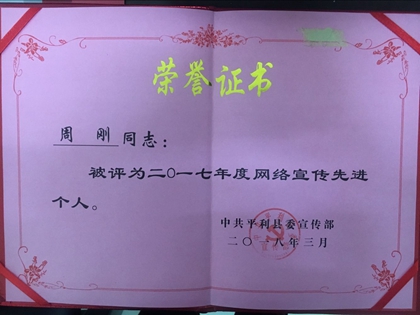 荣誉证书
周 刚 同志：
被评为二〇一七年度网络宣传先进
个人。
中共平利县委宣传部
二〇一八年三月